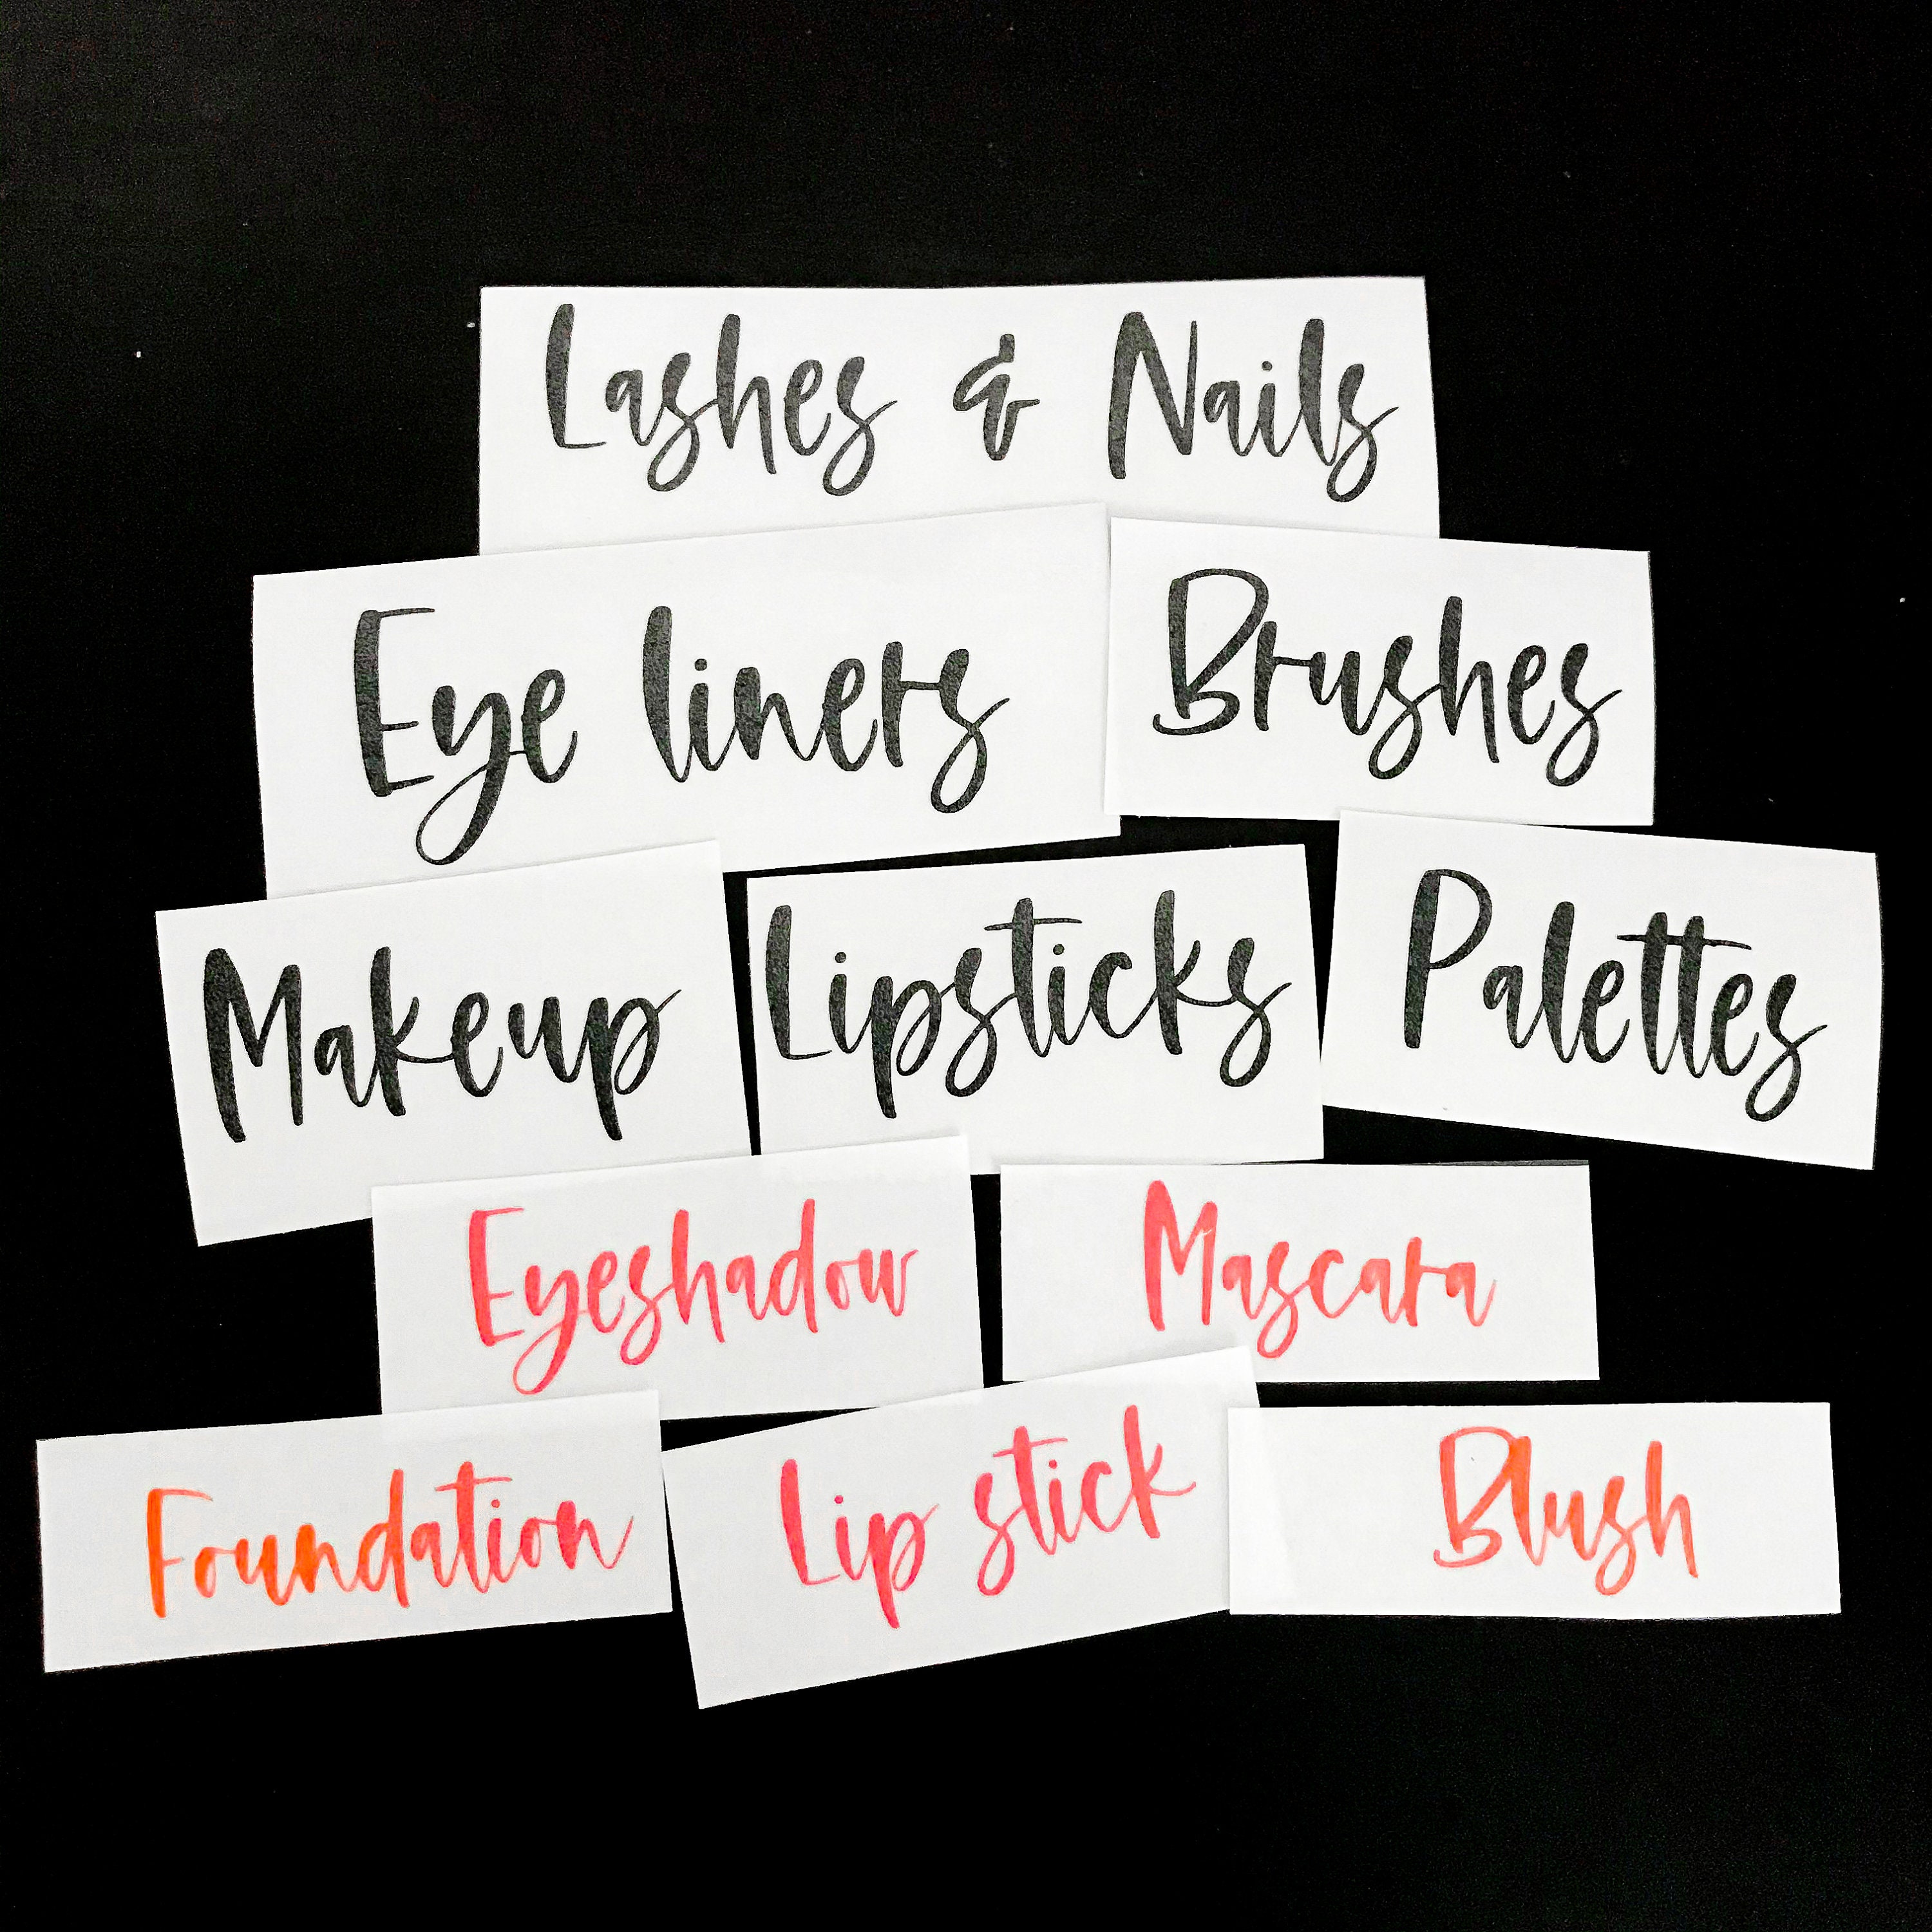 Lashes & Nails
Eye liners
Brushes
Makeup
Lipsticks
Palettes
Eyeshadow
Mascara
Foundation
Lip stick
Blush